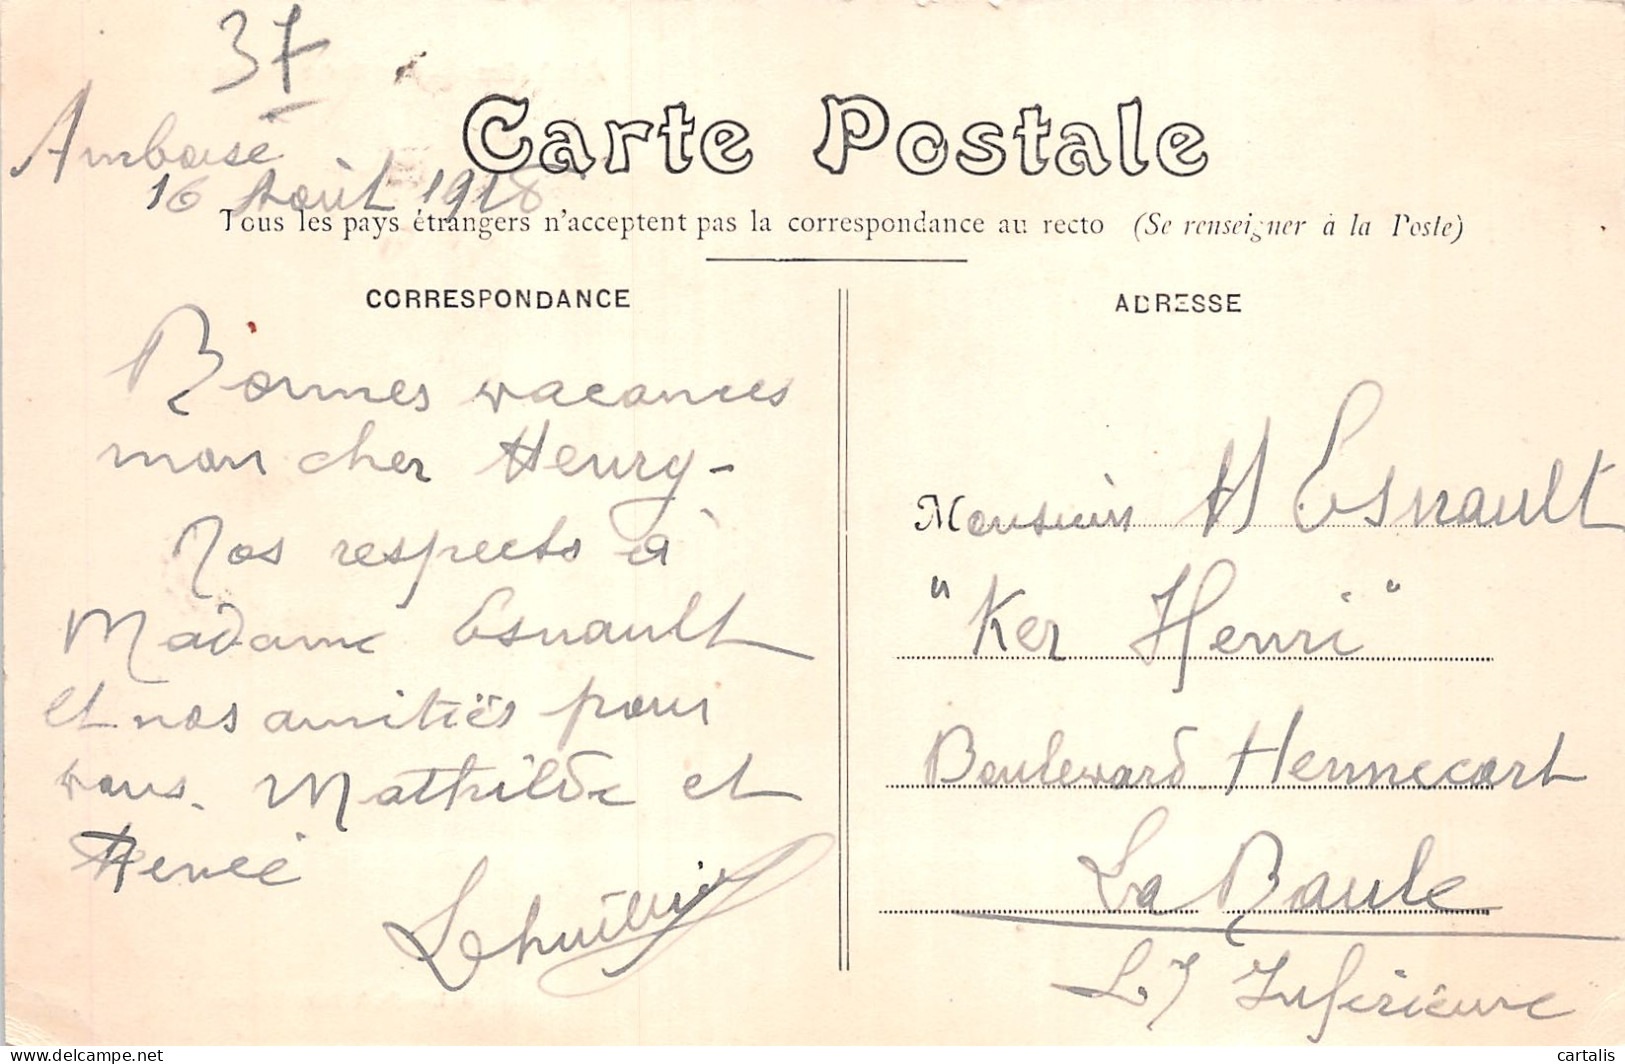 37
Amboise
16 Août 1918
Carte Postale
Tous les pays étrangers n'acceptent pas la correspondance au recto (Se renseigner à la Poste)
CORRESPONDANCE
Bonnes vacances
mon cher Henry -
Nos respects à
Madame Esnault
et nos amitiés pour
vous. Mathilde et
Renée
ADRESSE
Monsieur H Esnault
"Ker Henri"
Boulevard Hennecart
La Baule
L Inférieure
delcampe.net
cartalis